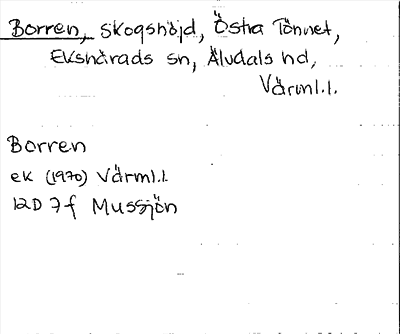 Borren, skogshöjd, Östra Tönnet,
Ekshärads sn, Älvdals hd,
Värml.l.
Borren
ek (1970) Värml.l.
12D 7f Mussjön